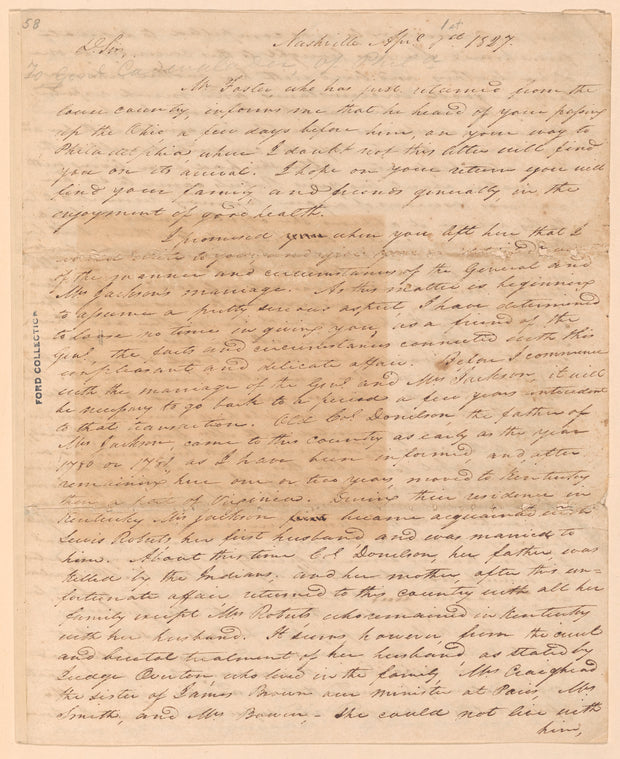 58
Nashville April 1st 1827.
Dr Sir,
To Genl Cadwalader of Phila
Mr Foster, who has just returned from the
lower country, informs me that he heard of your passing
up the Ohio a few days before him, on your way to
Philadelphia, where I doubt not this letter will find
you on its arrival. I hope on your return you will
find your family, and friends generally, in the
enjoyment of good health.
I promised you when you left here that I
would write to you and give you
of the manner and circumstances of the General and
Mrs Jackson's marriage. As this matter is beginning
to assume a pretty serious aspect, I have determined
to loose no time in giving you, as a friend of the
Genl, the facts and circumstances connected with this
unpleasant and delicate affair. Before I commence
with the marriage of the Genl and Mrs Jackson, it will
be necessary to go back to a period a few years antecedent
to that transaction. Old Col Donelson the father of
Mrs Jackson, came to this country as early as the year
1780 or 1781, as I have been informed, and after
remaining here one or two years, moved to Kentucky,
then a part of Virginia. During their residence in
Kentucky Mrs Jackson, became acquainted with
Lewis Roberts her first husband and was married to
him. About this time Col Donelson, her father, was
killed by the Indians; and her mother, after this un-
fortunate affair returned to this country with all her
family except Mrs Roberts who remained in Kentucky
with her husband. It seems, however, from the cruel
and brutal treatment of her husband, as stated by
Judge Overton, who lived in the family, Mrs Craighead
the sister of James Brown our minister at Paris, Mrs
Smith, and Mrs Bowen, - she could not live with
him,
FORD COLLECTION